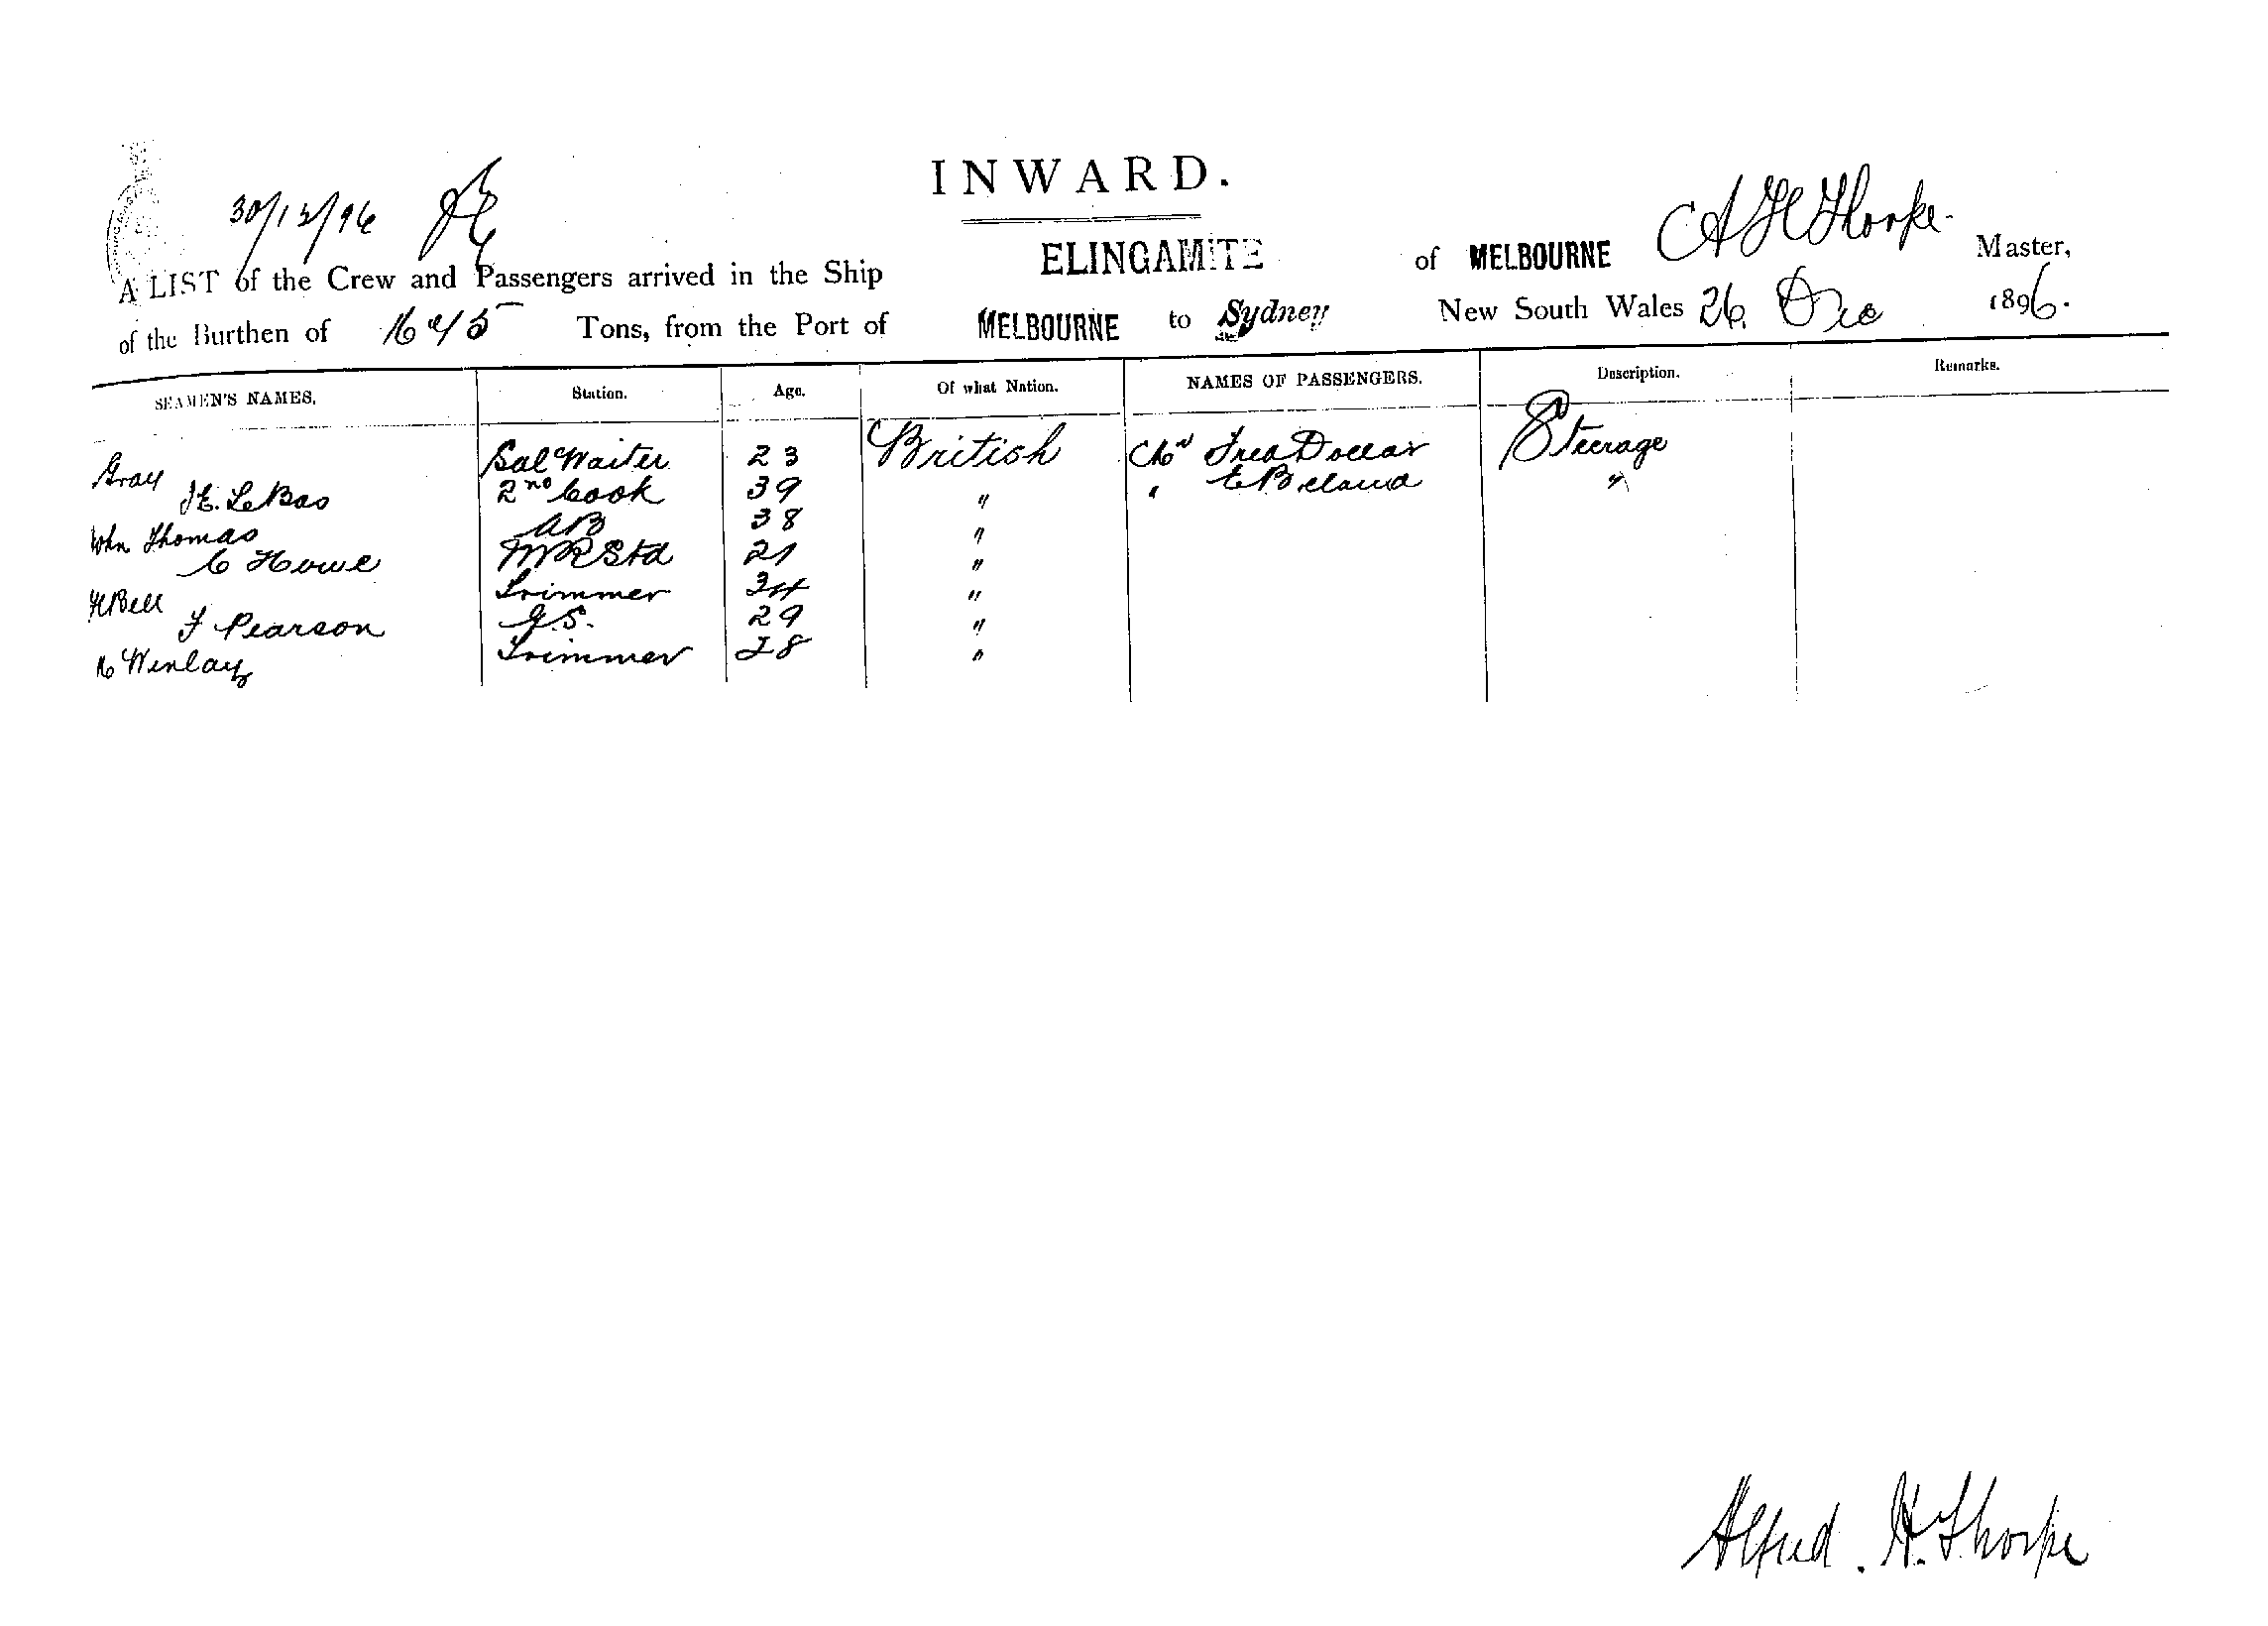 INWARD.
30/12/96
A LIST of the Crew and Passengers arrived in the Ship ELINGAMITE of MELBOURNE A H Thorpe Master,
of the Burthen of 1645 Tons, from the Port of MELBOURNE to Sydney New South Wales 26 Dec 1896.
SEAMEN'S NAMES. Station. Age. Of what Nation. NAMES OF PASSENGERS. Description. Remarks.
Gray Sal Waiter 23 British Fred Dollar Steerage
LeBas 2nd Cook 39 " " E Beland "
John Thomas AB 38 "
C Howe Std 21 "
H Bell Trimmer 34 "
F Pearson G.S. 29 "
Winlay Trimmer 28 "
Alfred. H. Thorpe